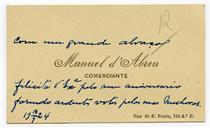 R
Com um grande abraço
Manuel d'Abreu
COMERCIANTE
felicita V. Exª pelo seu aniversario
fazendo ardentes votos pelas suas melhoras.
19-7-24
Rua de S. Paulo, 111 2.º E.